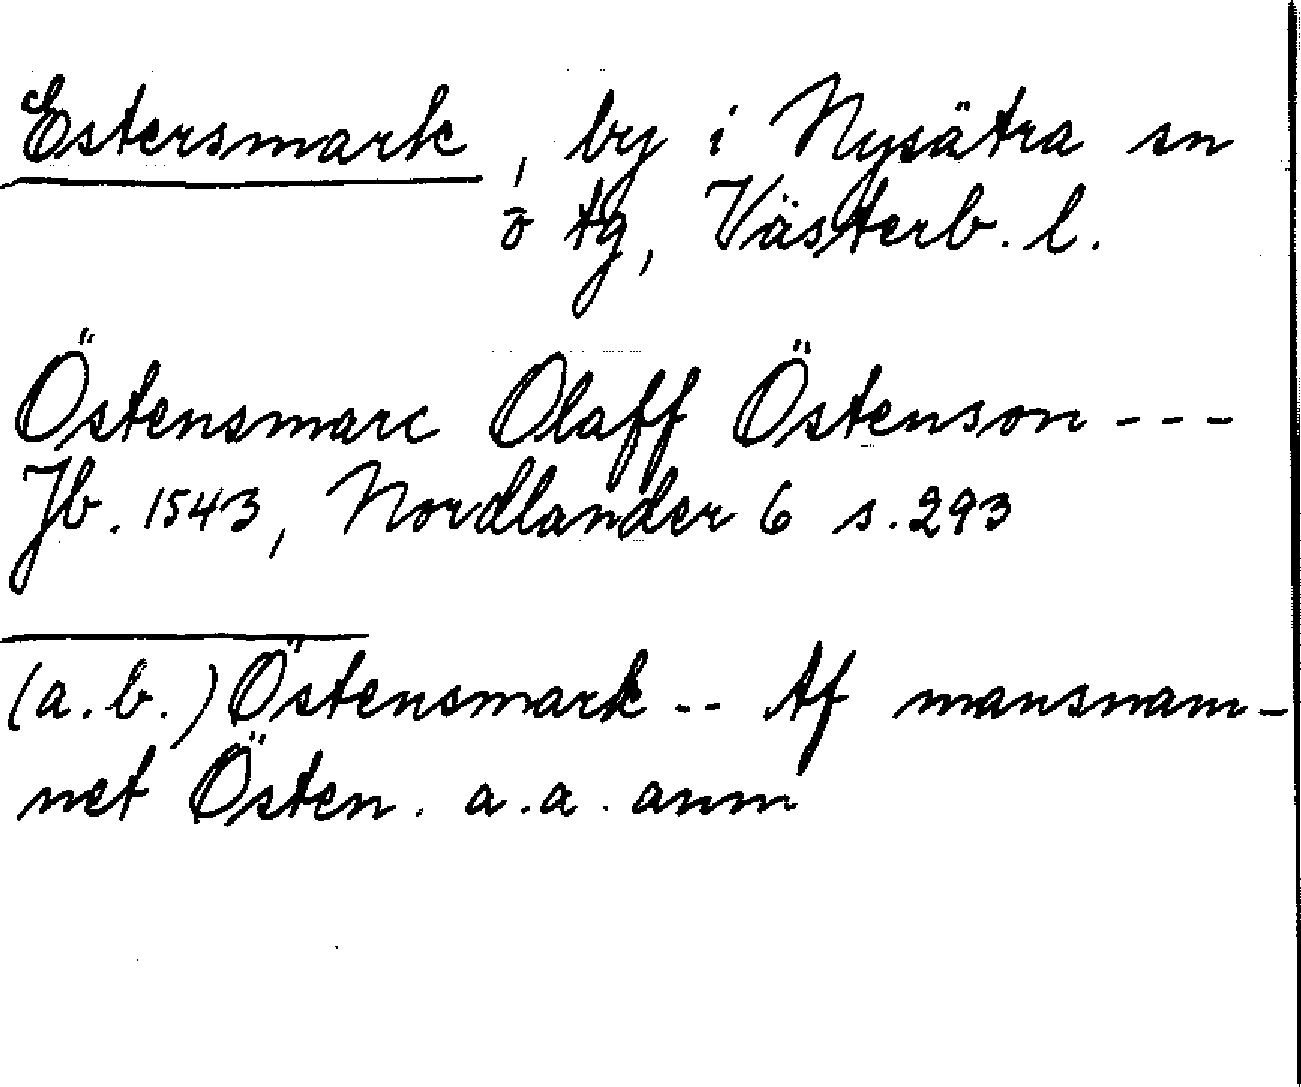 Estersmark, by i Nysätra sn
o tg, Västerb. l.
Östensmarc Olaff Östenson ---
Jb. 1543, Nordlander 6 s. 293
(a.b.) Östensmark -- Af mansnam-
net Östen. a.a. anm